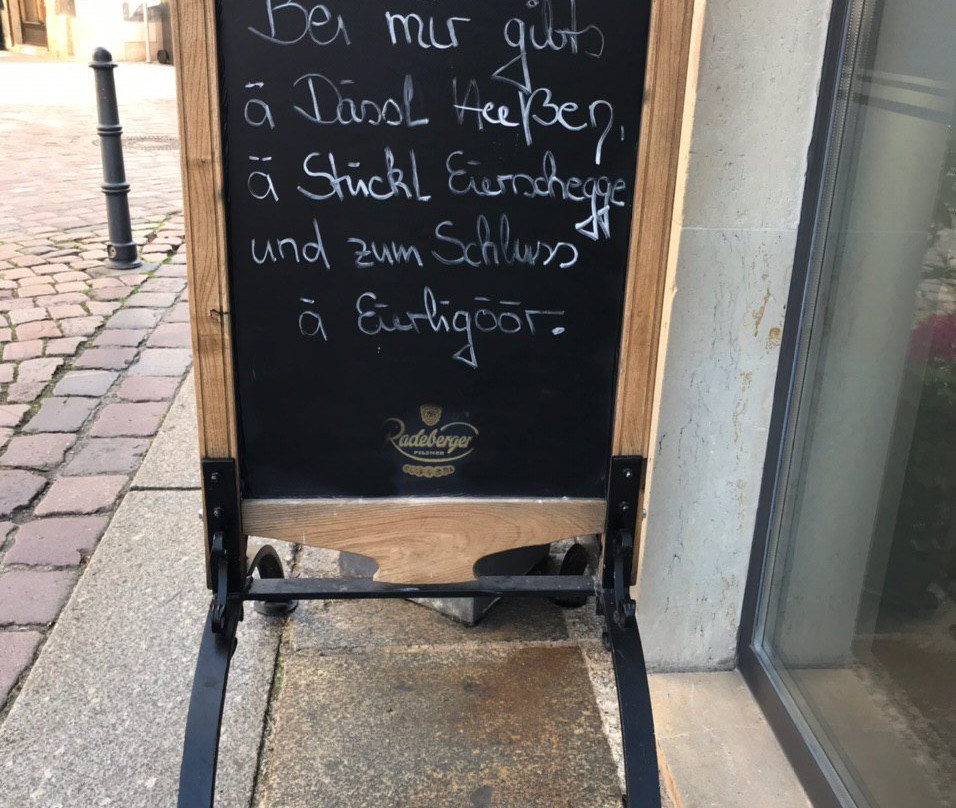 Bei mir gibts
ä Dässl Heeßen,
ä Stückl Eierschegge
und zum Schluss
ä Eierligöör.
Radeberger
PILSNER